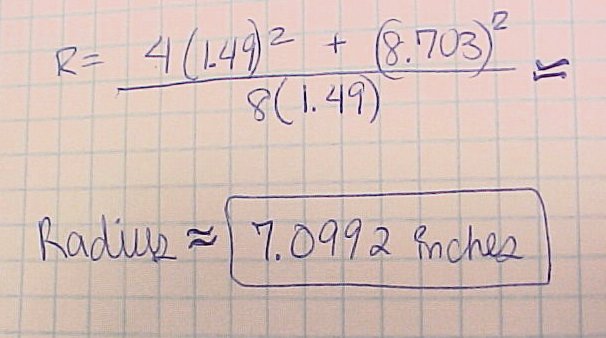 R = 4(1.49)² + (8.703)² ≃
8(1.49)
Radius ≈ 7.0992 inches